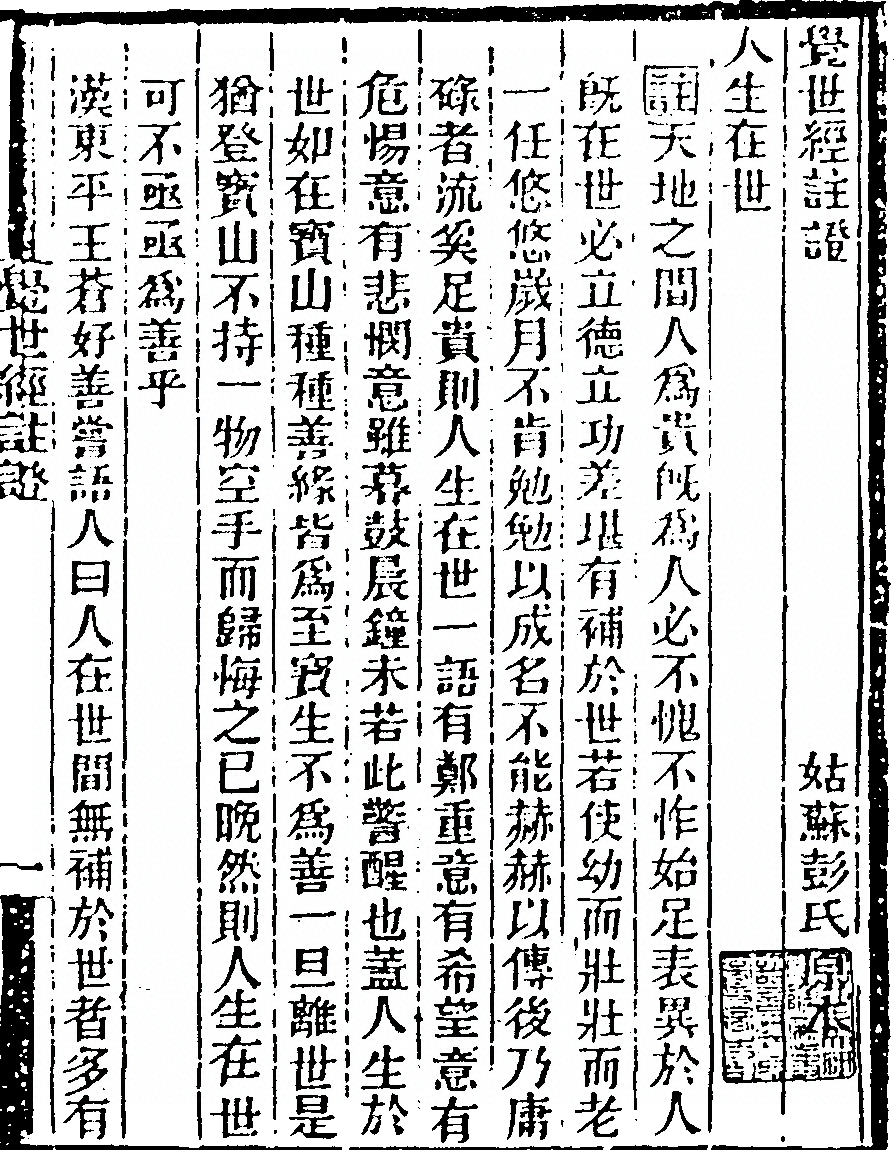 覺世經註證　姑蘇彭氏原本
人生在世
註天地之間人爲貴旣爲人必不愧不怍始足表異於人
旣在世必立德立功差堪有補於世若使幼而壯壯而老
一任悠悠歲月不肯勉勉以成名不能赫赫以傳後乃庸
碌者流奚足貴則人生在世一語有鄭重意有希望意有
危惕意有悲憫意雖暮鼓晨鐘未若此警醒也蓋人生於
世如在寶山種種善緣皆爲至寶生不爲善一旦離世是
猶登寶山不持一物空手而歸悔之已晚然則人生在世
可不亟亟爲善乎
漢東平王蒼好善嘗語人曰人在世間無補於世者多有
覺世經註證
一